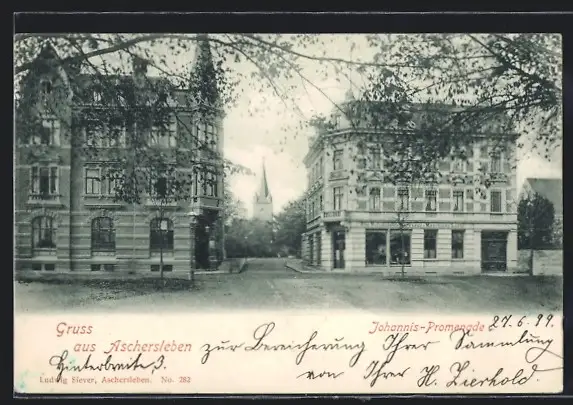 Gruss
aus Aschersleben
Johannis-Promenade
27.6.99.
Hinterbreite 3.
zur Bereicherung Ihrer Sammlung
von Ihrer H. Zierhold.
Ludwig Siever, Aschersleben. No. 282